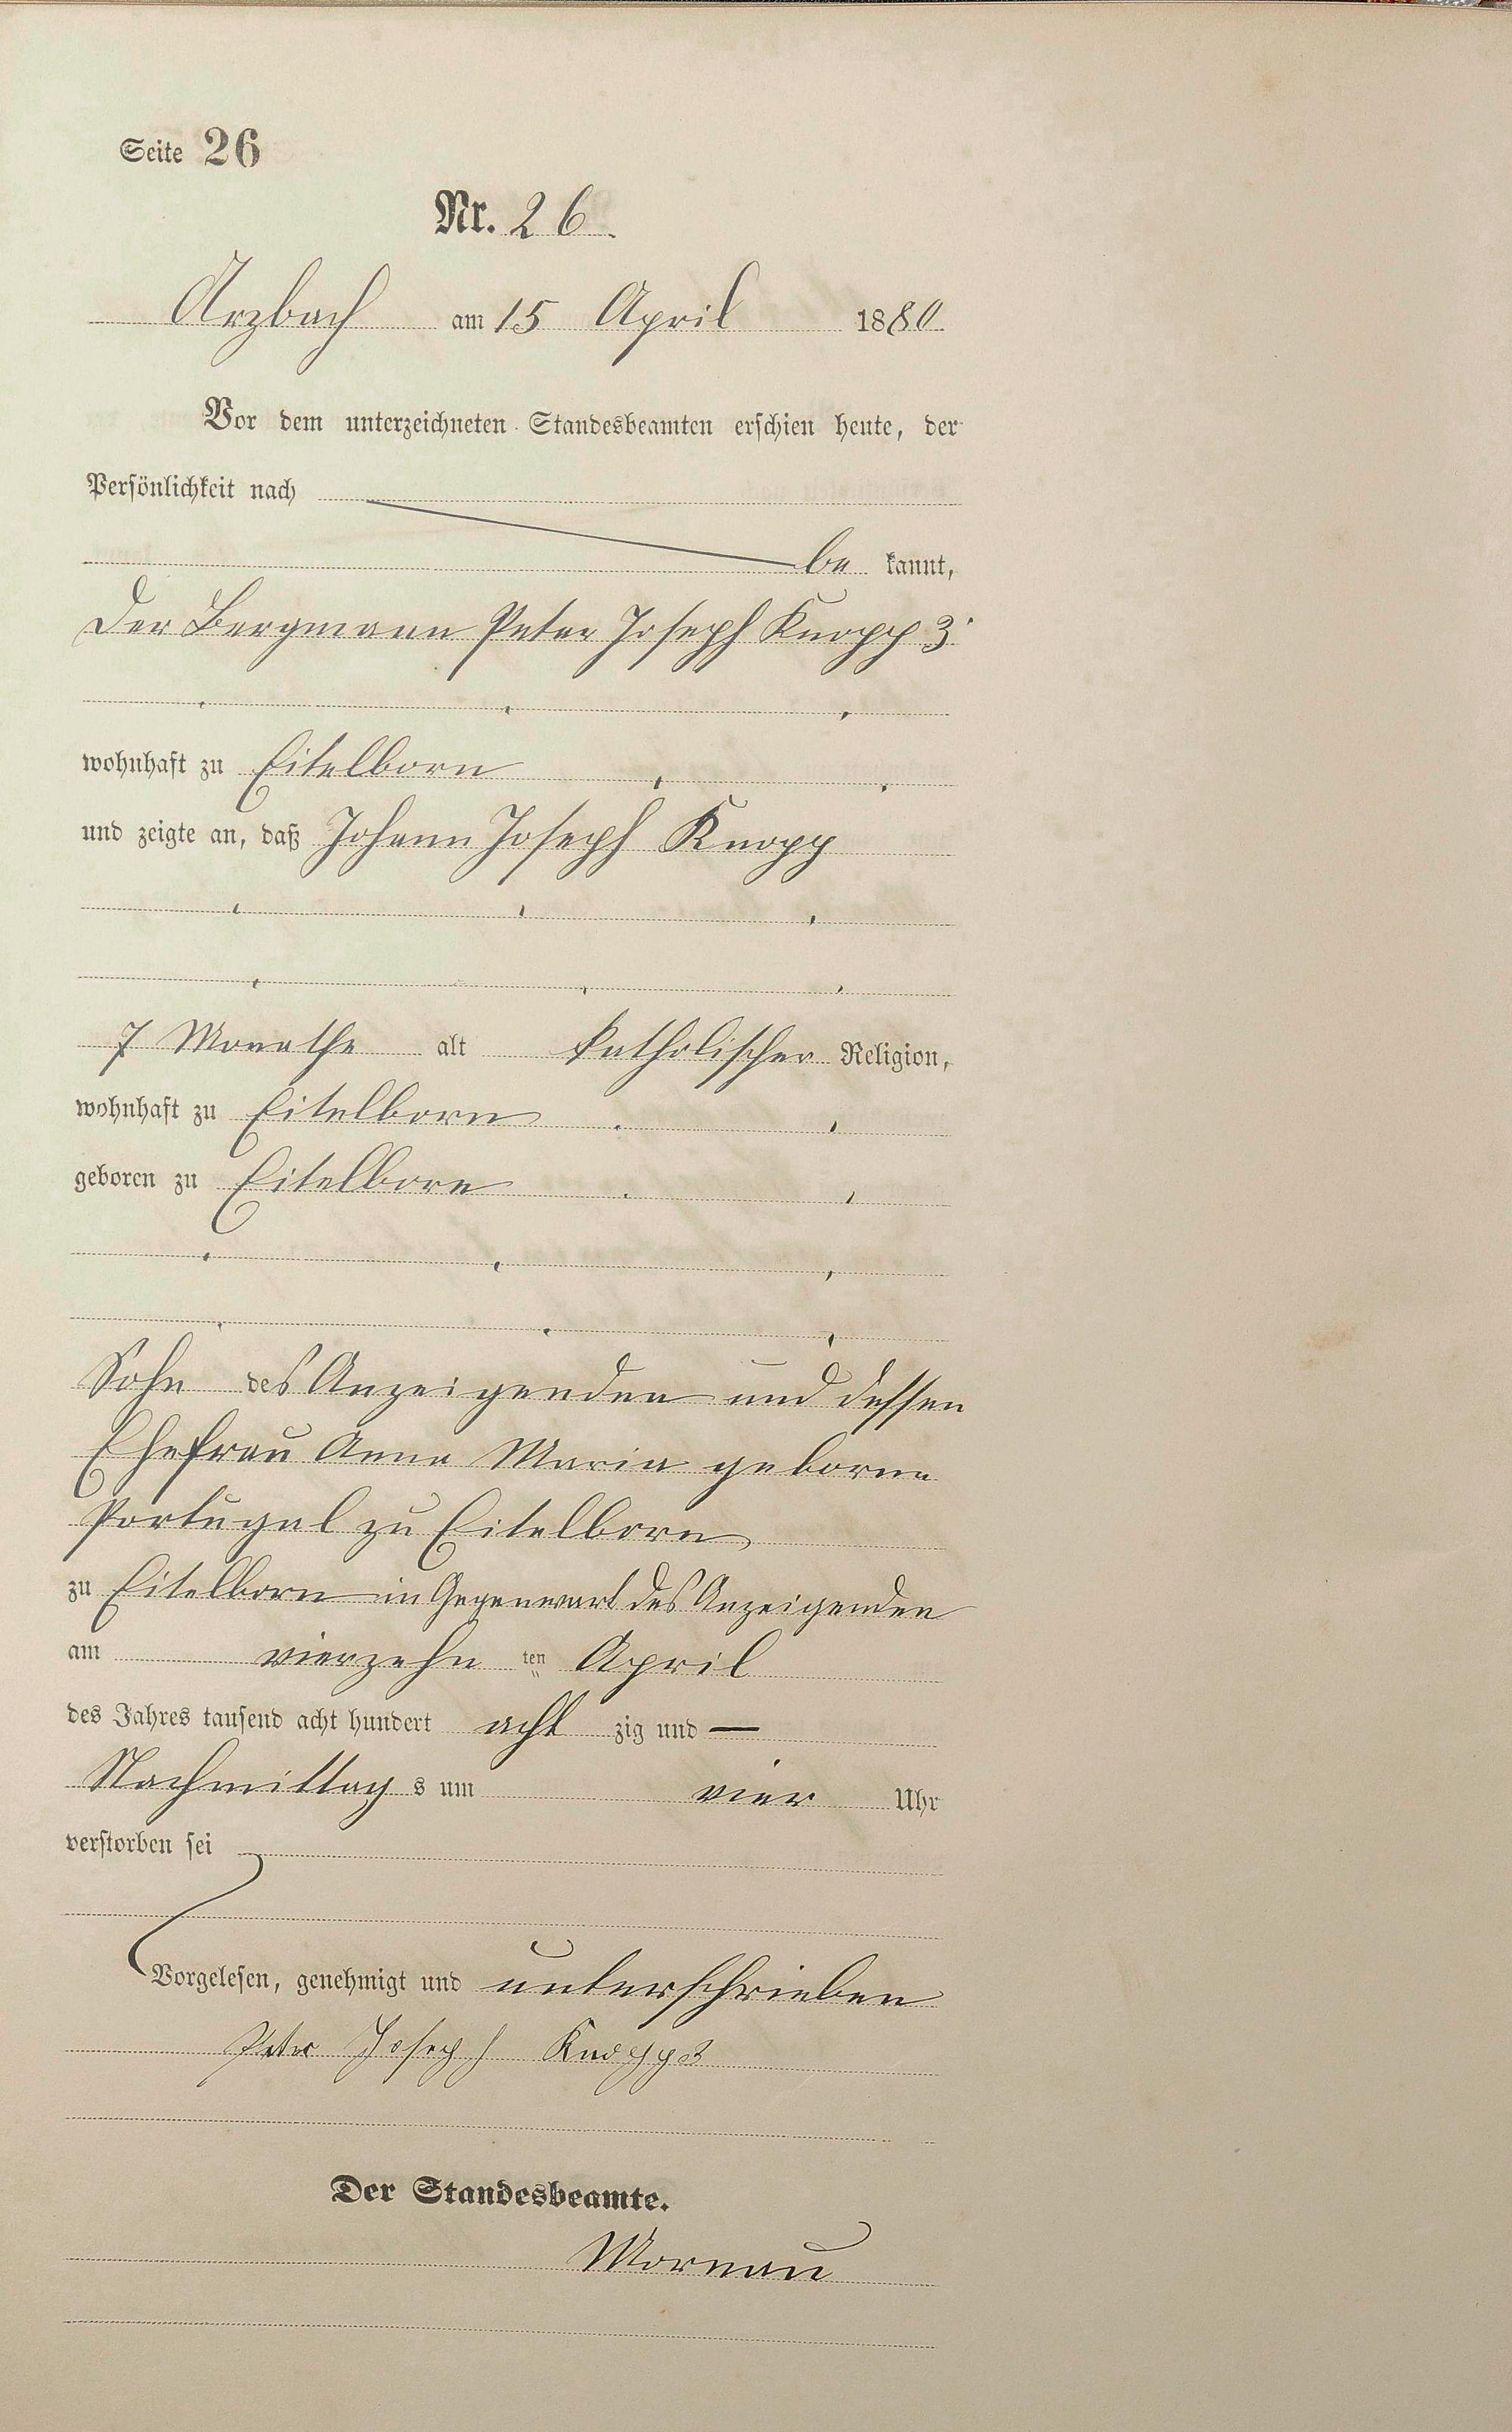 Seite 26
Nr. 26
Arzbach am 15 April 1880
Vor dem unterzeichneten Standesbeamten erschien heute, der
Persönlichkeit nach
be kannt,
Der Bergmann Peter Joseph Knopp 3.
wohnhaft zu Eitelborn
und zeigte an, daß Johann Joseph Knopp
7 Monathe alt katholischer Religion,
wohnhaft zu Eitelborn
geboren zu Eitelborn
Sohn des Anzeigenden und dessen
Ehefrau Anna Maria geborne
Portugal zu Eitelborn
zu Eitelborn in Gegenwart des Anzeigenden
am vierzehn ten April
des Jahres tausend acht hundert acht zig und —
Nachmittag s um vier Uhr
verstorben sei
Vorgelesen, genehmigt und unterschrieben
Peter Joseph Knopp 3
Der Standesbeamte.
Mornau